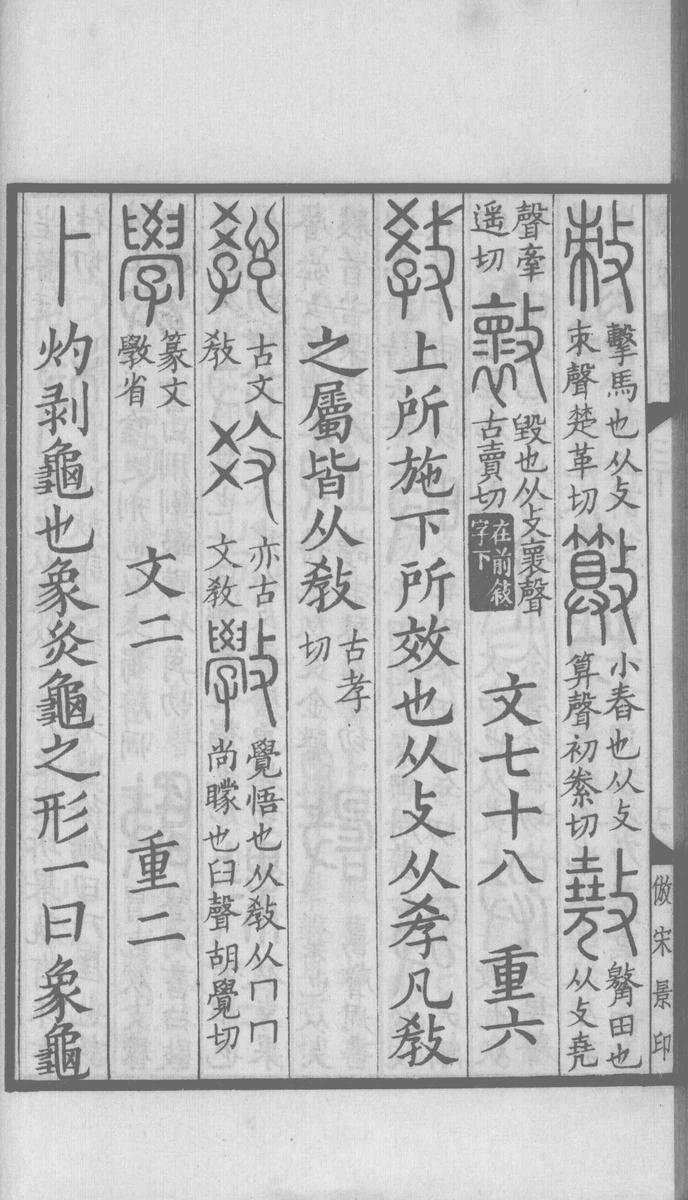 敕擊馬也从攴朿聲楚革切 㪜小舂也从攴算聲初絭切 𢿣䃌田也从攴堯
聲牽遥切 𢾭毀也从攴褱聲古賣切 在前敍字下 文七十八 重六
敎上所施下所效也从攴从孝凡敎
之屬皆从敎古孝切
𧧿古文敎 𤕝亦古文敎 斆覺悟也从敎从冂冂尚矇也𦥑聲胡覺切
學篆文斆省 文二 重二
卜灼剥龜也象灸龜之形一曰象龜
倣宋景印